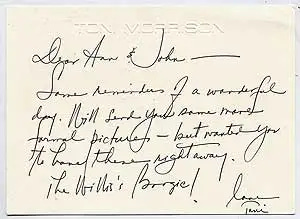 TONI MORRISON
Dear Ann & John —
Some reminders of a wonderful
day. Will send you some more
formal pictures — but wanted you
to have these right away.
The Willis's Boogie!
Love
Toni